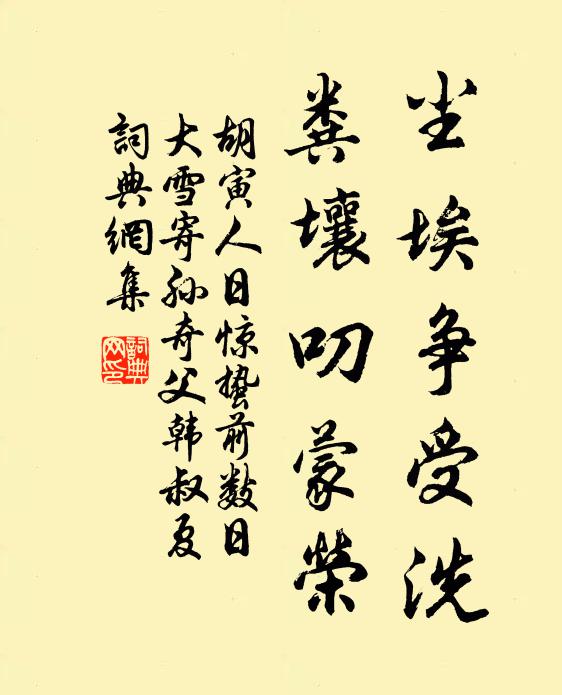 尘埃争受洗
粪壤叨蒙荣
胡寅人日惊蛰前数日
大雪寄孙奇父韩叔夏
词典網集
詞典網印